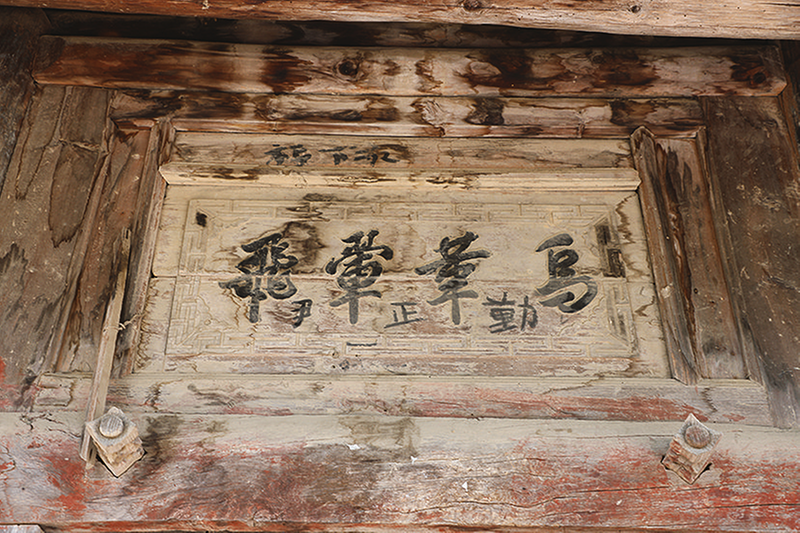 鳥革翬飛
勤正尹